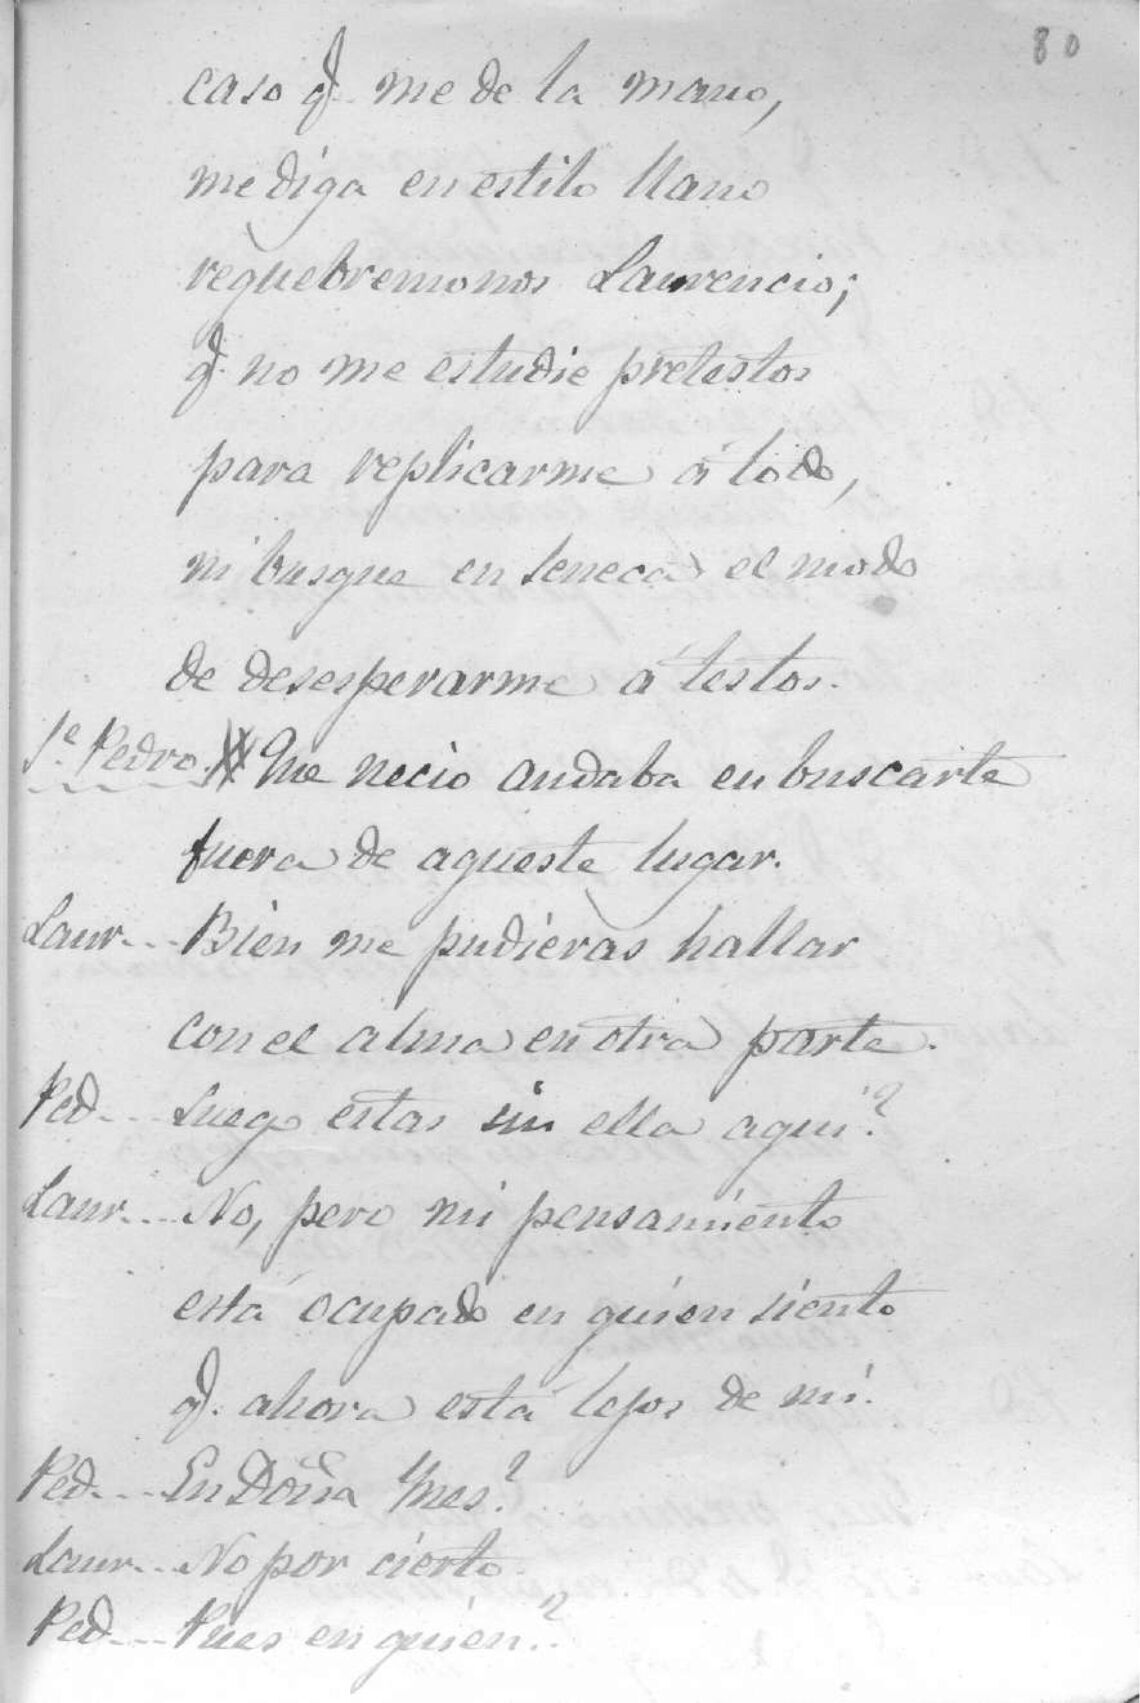 80
caso q.^ me de la mano,
me diga en estilo llano
requebremonos Laurencio;
q.^ no me estudie pretestos
para replicarme á todo,
ni busque en Seneca el modo
de desesperarme á testos.
S.^e Pedro. Que necio andaba en buscarte
fuera de aqueste lugar.
Laur... Bien me pudieras hallar
con el alma en otra parte.
Ped... Luego estas sin ella aqui?
Laur... No, pero mi pensamiento
está ocupado en quien siento
q.^ ahora está lejos de mi.
Ped... En Doña Ynes?
Laur... No por cierto.
Ped... Pues en quién?